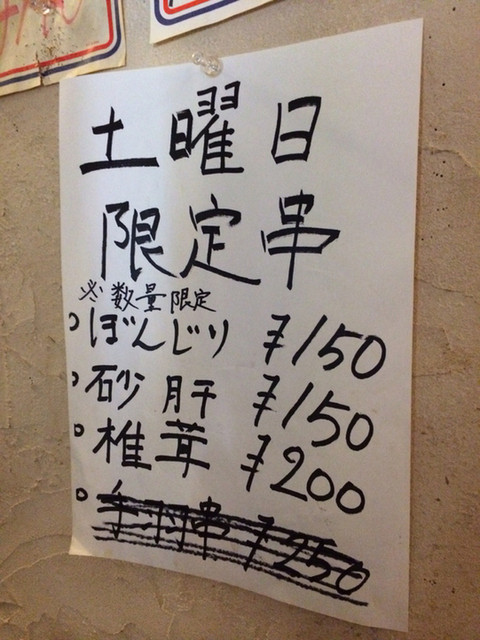 土曜日
限定串
※数量限定
○ぼんじり ¥150
○砂肝 ¥150
○椎茸 ¥200
○手羽串 ¥250